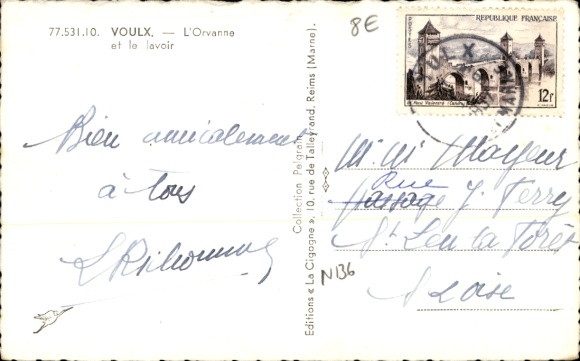 77.531.10. VOULX. — L'Orvanne
et le lavoir
8E
RÉPUBLIQUE FRANÇAISE
POSTES
12F
Bien amicalement
à tous
Editions « La Cigogne », 10, rue de Talleyrand, Reims (Marne).
Collection Pelgrain
N136
Mr Mme Mayeur
Rue
Passage J. Ferry
St Leu la Forêt
S Oise